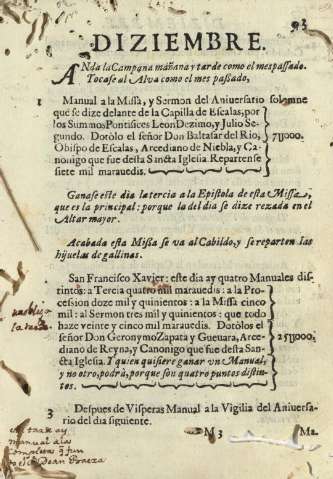 93
DIZIEMBRE.
ANda la Campana mañana y tarde como el mes passado.
Tocase al Alva como el mes passado,
1 Manual a la Missa, y Sermon del Aniversario solemne
que se dize delante de la Capilla de Escalas, por
los Summos Pontifices Leon Dezimo, y Julio Se-
gundo. Dotòlo el señor Don Baltasar del Rio,
Obispo de Escalas, Arcediano de Niebla, y Ca-
nonigo que fue desta Sancta Iglesia. Repartense
siete mil maravedis.
7µ000.
Ganase este dia la tercia a la Epistola de esta Missa,
que es la principal: porque la del dia se dize rezada en el
Altar mayor.
Acabada esta Missa se va al Cabildo, y se reparten las
hijuelas de gallinas.
San Francisco Xavier: este dia ay quatro Manuales dis-
tintos: a Tercia quatro mil maravedis: a la Pro-
cession doze mil y quinientos: a la Missa cinco
mil: al Sermon tres mil y quinientos: que todo
haze veinte y cinco mil maravedis. Dotòlos el
señor Don Geronymo Zapata y Guevara, Arce-
diano de Reyna, y Canonigo que fue desta San-
cta Iglesia. Y quien quisiere ganar vn Manual,
y no otro, podrà, porque son quatro puntos distin-
tos.
25µ000.
3 Despues de Visperas Manual a la Vigilia del Aniversa-
rio del dia siguiente.
M 3 Ma.
a la tarde ay
manual a las
completas q̃ fun
do el Dean